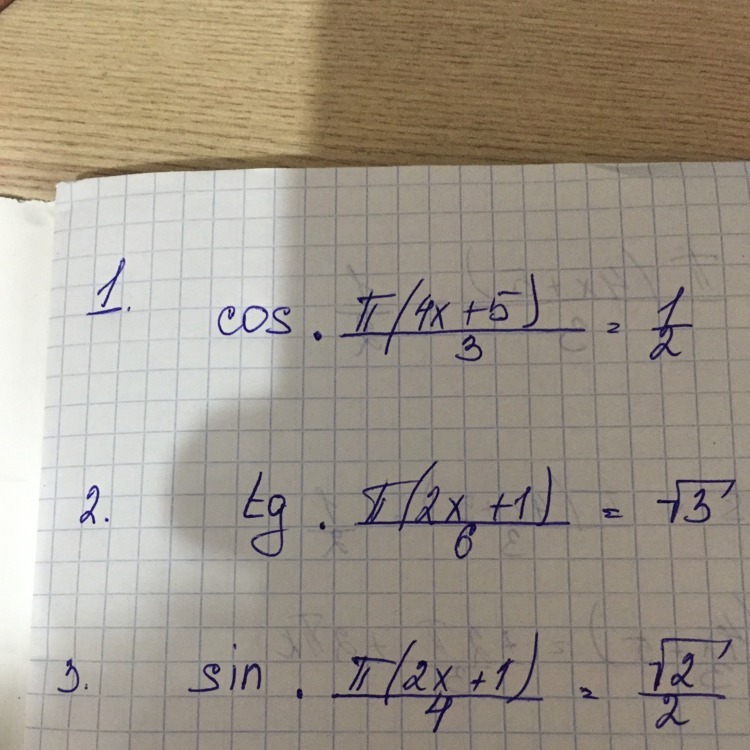 1. cos . π(4x+5)/3 = 1/2
2. tg . π(2x+1)/6 = √3
3. sin . π(2x+1)/4 = √2/2